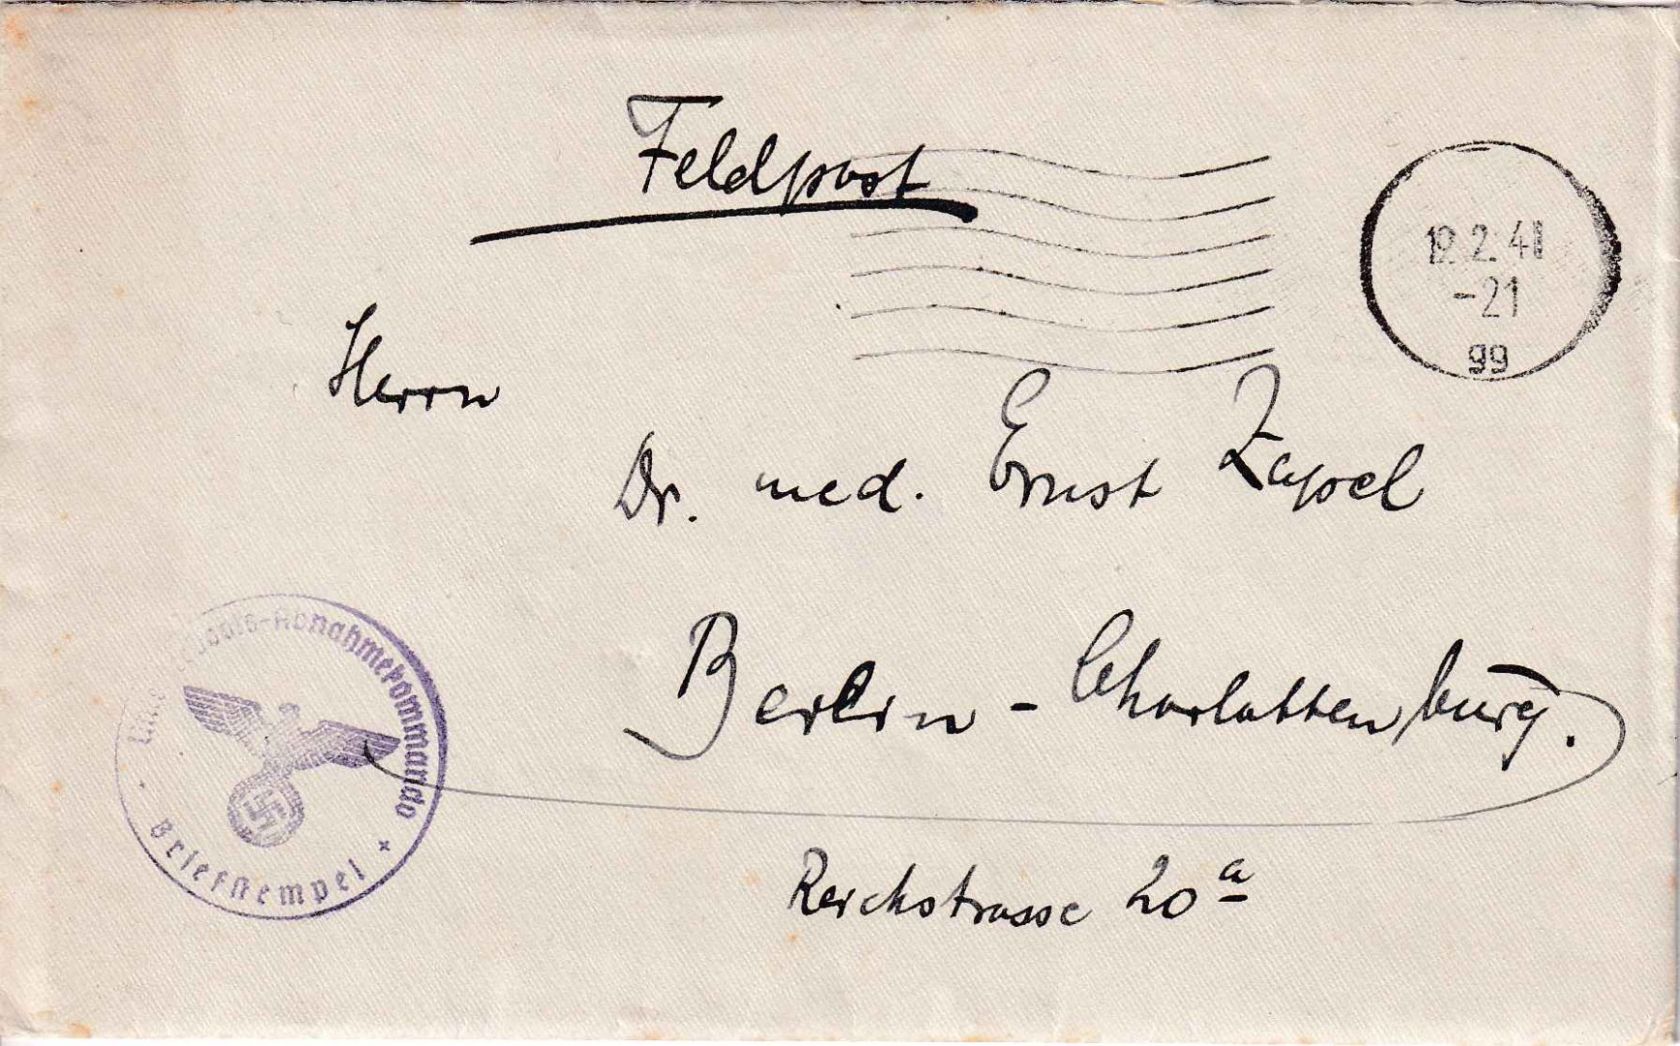 Feldpost
12.2.41
-21
gg
Herrn
Dr. med. Ernst Zapel
Berlin - Charlottenburg.
Reichstrasse 20 a
-Abnahmekommando
Briefstempel